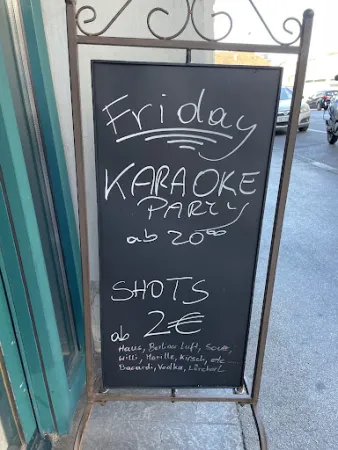 Friday
KARAOKE
PARTY
ab 20⁰⁰
SHOTS
ab 2€
Haus, Berliner Luft, Sour,
Willi, Marille, Kirsch, etc
Bacardi, Vodka,